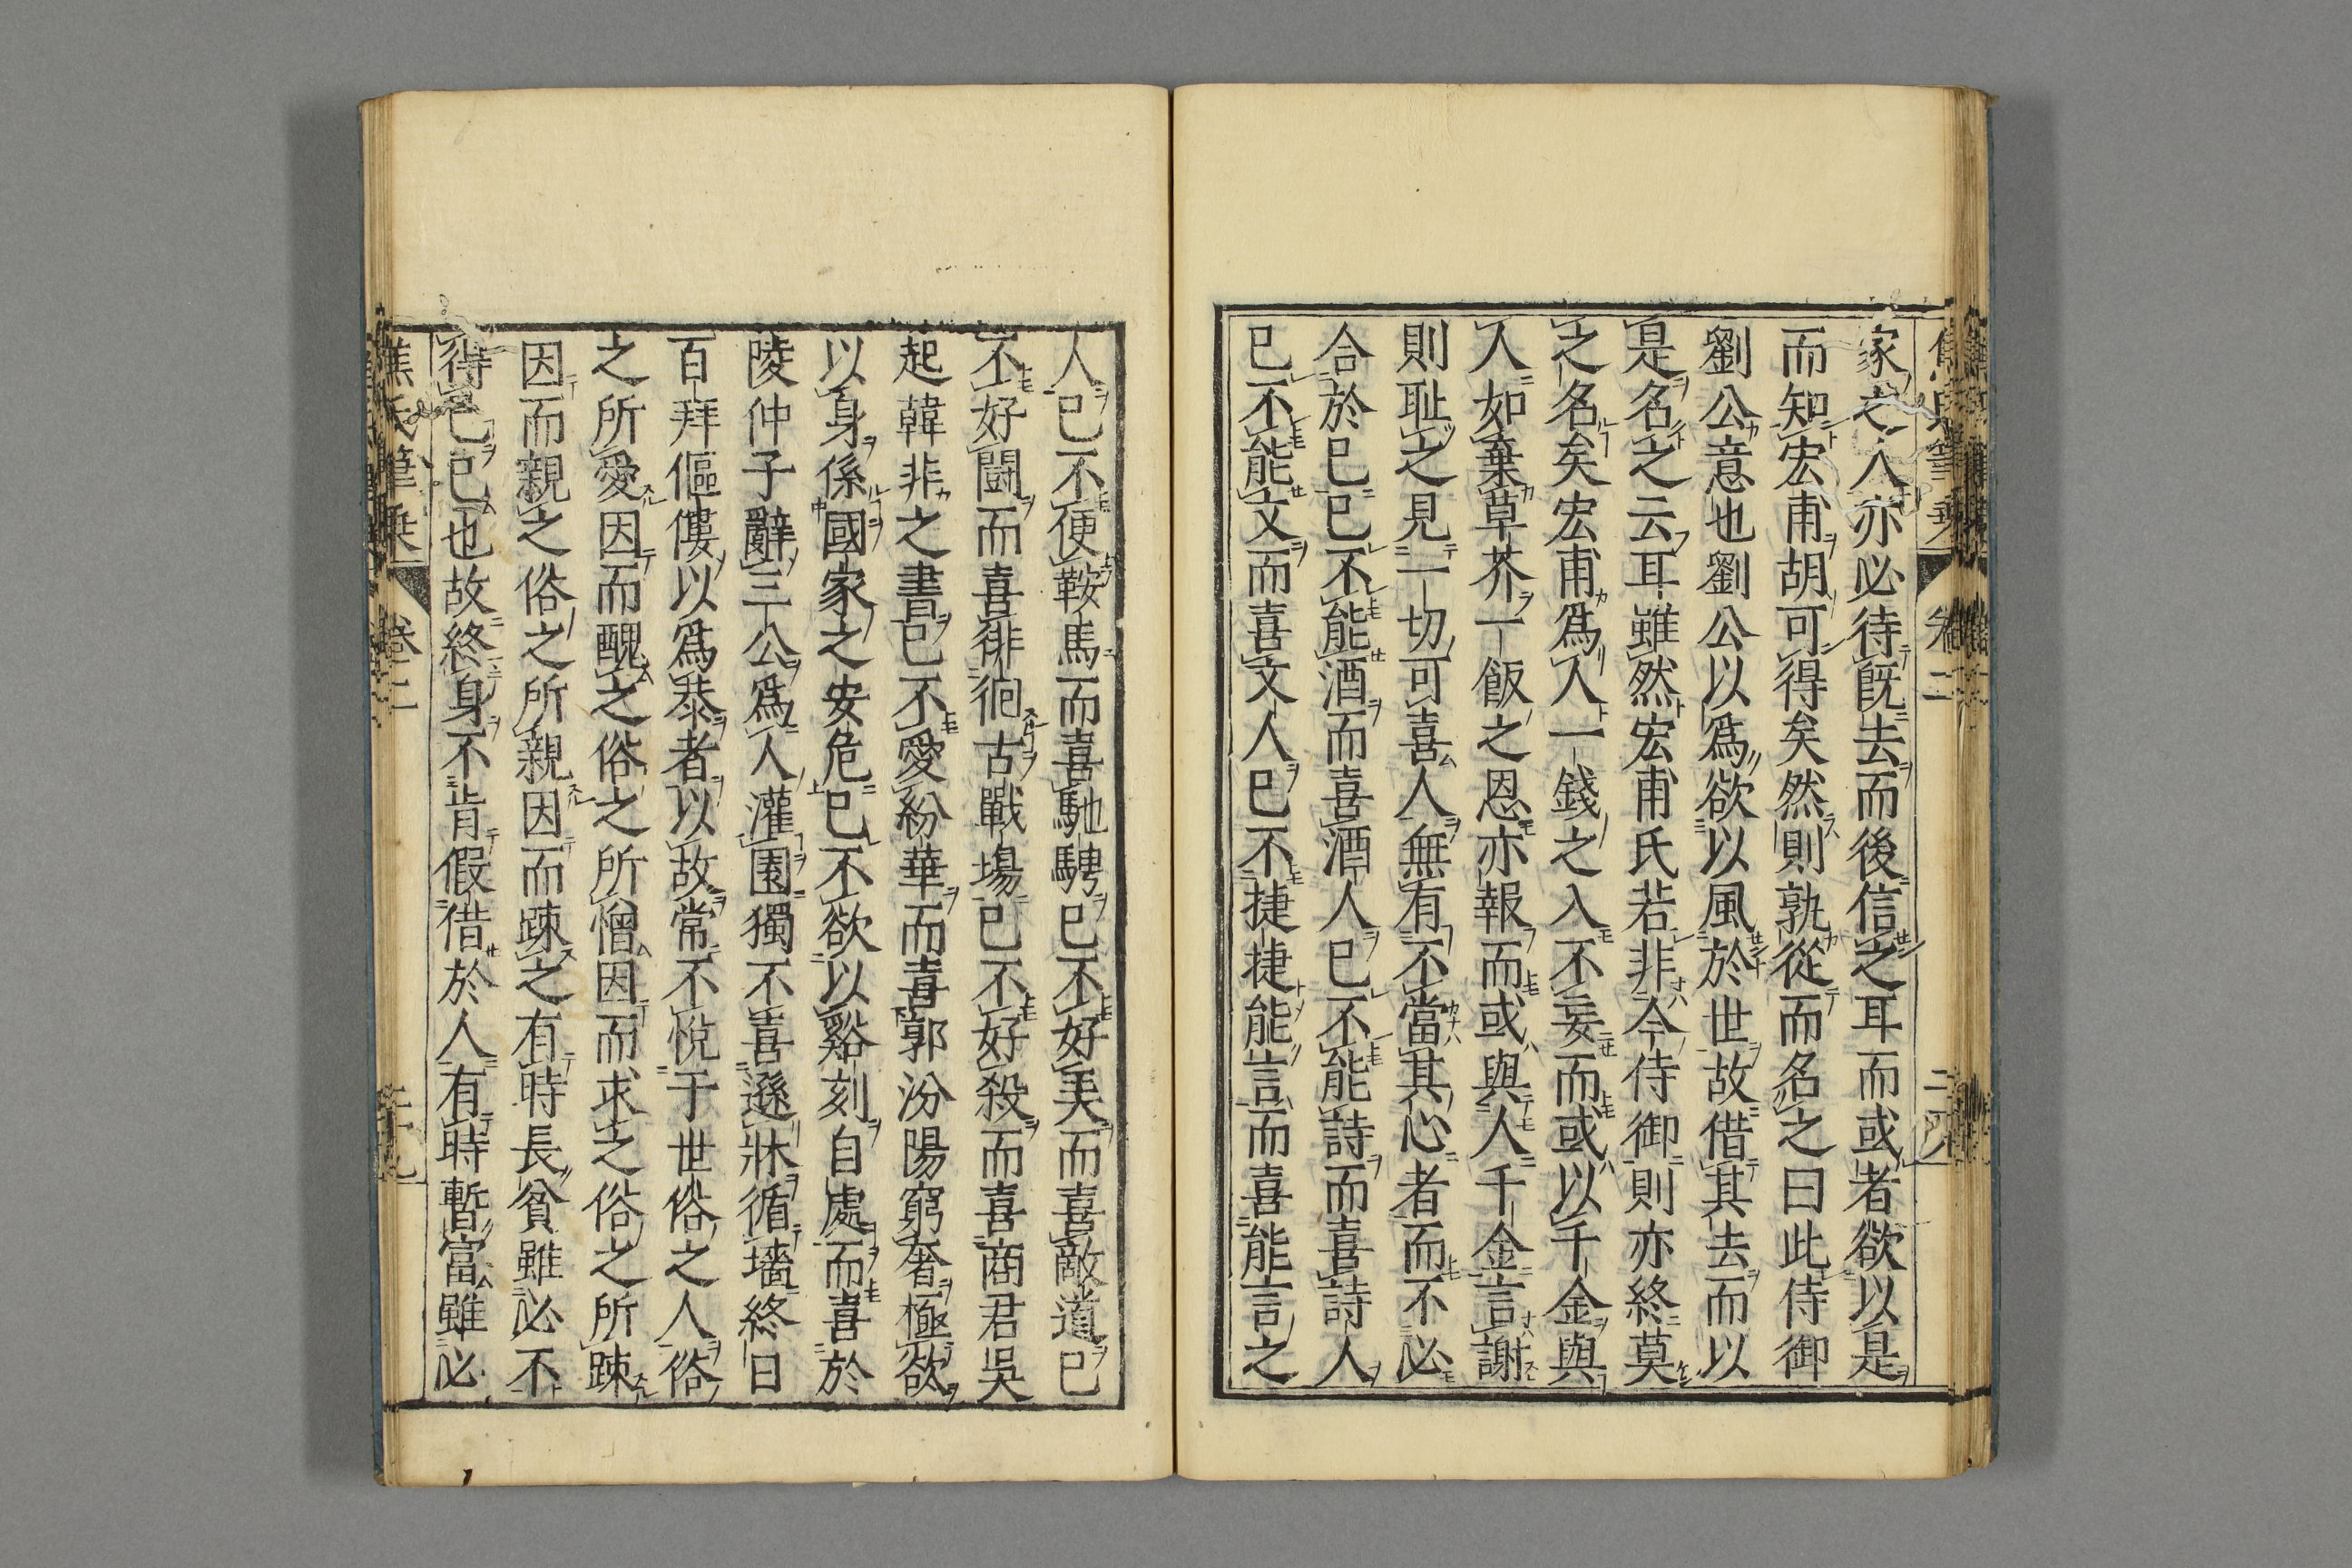 家之人亦必待既去而後信之耳而或者欲以是
而知宏甫胡可得矣然則孰從而名之曰此侍御
劉公意也劉公以爲欲以風於世故借其去而以
是名之云耳雖然宏甫氏若非今侍御則亦終莫
之名矣宏甫爲人一錢之入不妄而或以千金與
人如棄草芥一飯之恩亦報而或與人千金言謝
則耻之見一切可喜人無有不當其心者而不必
合於已已不能酒而喜酒人已不能詩而喜詩人
已不能文而喜文人已不捷捷能言而喜能言之
人已不便鞍馬而喜馳騁已不好美而喜敵道已
不好鬪而喜徘徊古戰場已不好殺而喜商君吳
起韓非之書已不愛紛華而喜郭汾陽窮奢極欲
以身係國家之安危已不欲以谿刻自處而喜於
陵仲子辭三公爲人灌園獨不喜遜牀循墻終日
百拜傴僂以爲恭者以故常不悅于世俗之人俗
之所愛因而醜之俗之所憎因而求之俗之所踈
因而親之俗之所親因而踈之有時長貧雖必不
得已已也故終身不肯假借於人有時暫富雖必
焦氏筆乘 卷二